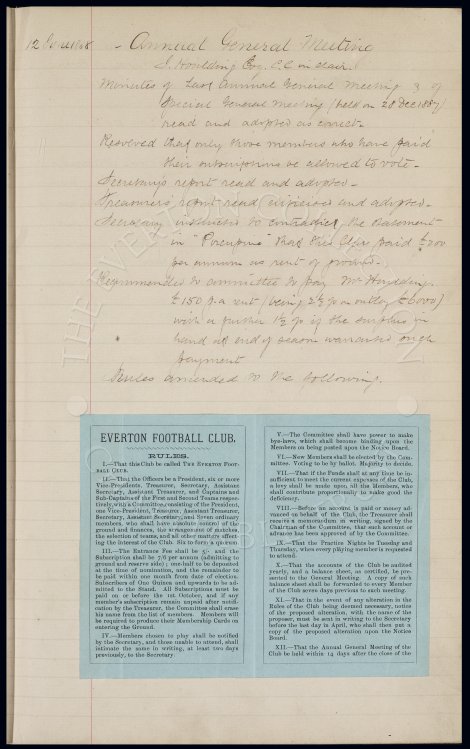 12 June 1888 - Annual General Meeting
J. Houlding Esq. C.C. in chair.
Minutes of Last Annual General Meeting & of
Special General Meeting (held on 28 Dec 1887)
read and adopted as correct.
Resolved that only those members who have paid
their subscriptions be allowed to vote -
Secretary's report read and adopted -
Treasurer's report read criticised and adopted -
Secretary instructed to contradict the statement
in "Porcupine" that this Club paid £200
per annum as rent of ground.
Recommended to committee to pay Mr Houlding
£150 p.a. rent (being 2½ % on outlay £6000)
with a further 1½ % if the surplus in
hand at end of season warranted such
payment
Rules amended to the following.
EVERTON FOOTBALL CLUB.
RULES.
I.—That this Club be called THE EVERTON FOOT-
BALL CLUB.
II.—That the Officers be a President, six or more
Vice-Presidents, Treasurer, Secretary, Assistant
Secretary, Assistant Treasurer, and Captains and
Sub-Captains of the First and Second Teams respec-
tively, with a Committee, consisting of the President,
one Vice-President, Treasurer, Assistant Treasurer,
Secretary, Assistant Secretary and Seven ordinary
members, who shall have absolute control of the
ground and finances, the arrangement of matches,
the selection of teams, and all other matters affect-
ing the interest of the Club. Six to form a quorum
III.—The Entrance Fee shall be 5/- and the
Subscription shall be 7/6 per annum (admitting to
ground and reserve side); one-half to be deposited
at the time of nomination, and the remainder to
be paid within one month from date of election.
Subscribers of One Guinea and upwards to be ad-
mitted to the Stand. All Subscriptions must be
paid on or before the 1st October, and if any
member's subscription remain unpaid after notifi-
cation by the Treasurer, the Committee shall erase
his name from the list of members. Members will
be required to produce their Membership Cards on
entering the Ground.
IV.—Members chosen to play shall be notified
by the Secretary, and those unable to attend, shall
intimate the same in writing, at least two days
previously, to the Secretary
V.—The Committee shall have power to make
bye-laws, which shall become binding upon the
Members on being posted upon the Notice Board.
VI.—New Members shall be elected by the Com-
mittee. Voting to be by ballot. Majority to decide.
VII.—That if the Funds shall at any time be in-
sufficient to meet the current expenses of the Club,
a levy shall be made upon all the Members, who
shall contribute proportionally to make good the
deficiency.
VIII.—Before an account is paid or money ad-
vanced on behalf of the Club, the Treasurer shall
receive a memorandum in writing, signed by the
Chairman of the Committee, that such account or
advance has been approved of by the Committee.
IX.—That the Practice Nights be Tuesday and
Thursday, when every playing member is requested
to attend.
X.—That the accounts of the Club be audited
yearly, and a balance sheet, as certified, be pre-
sented to the General Meeting. A copy of such
balance sheet shall be forwarded to every Member
of the Club seven days previous to such meeting.
XI.—That in the event of any alteration in the
Rules of the Club being deemed necessary, notice
of the proposed alteration, with the name of the
proposer, must be sent in writing to the Secretary
before the last day in April, who shall then put a
copy of the proposed alteration upon the Notice
Board.
XII.—That the Annual General Meeting of the
Club be held within 14 days after the close of the